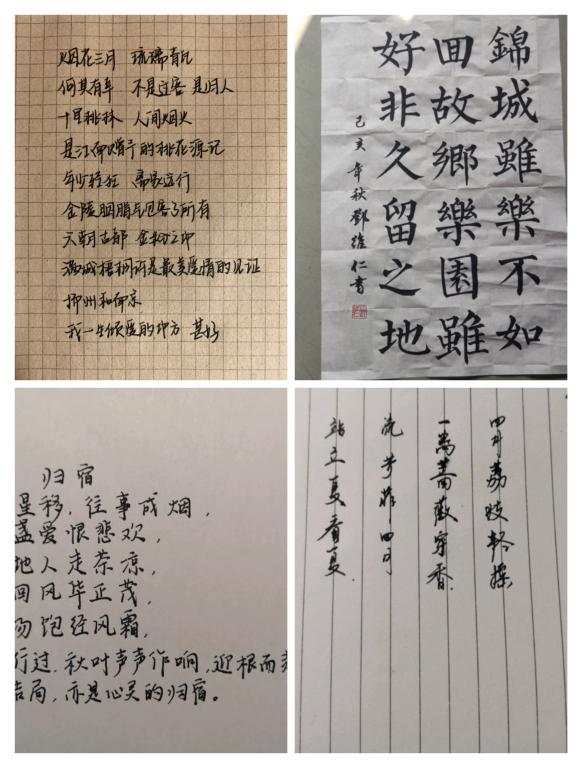 烟花三月 琉璃青瓦
何其有幸 不是过客 是归人
十里桃林 人间烟火
是江南赠予的桃花源记
年少轻狂 离家远行
金陵胭脂与包客了所有
六朝古都 金粉之中
满城梧桐许是最美爱情的见证
柳州和南京
我一生倾爱的地方 甚好
錦城雖樂不如
回故鄉樂園雖
好非久留之地
己亥年秋鄧維仁書
归宿
星移，往事成烟，
盏爱恨悲欢，
地人走茶凉，
回风华正茂，
饱经风霜，
行过，秋叶声声作响，迎根而
结局，亦是心灵的归宿。
四月荔枝轻
一为蔷薇穿香
流芳
站立夏看夏